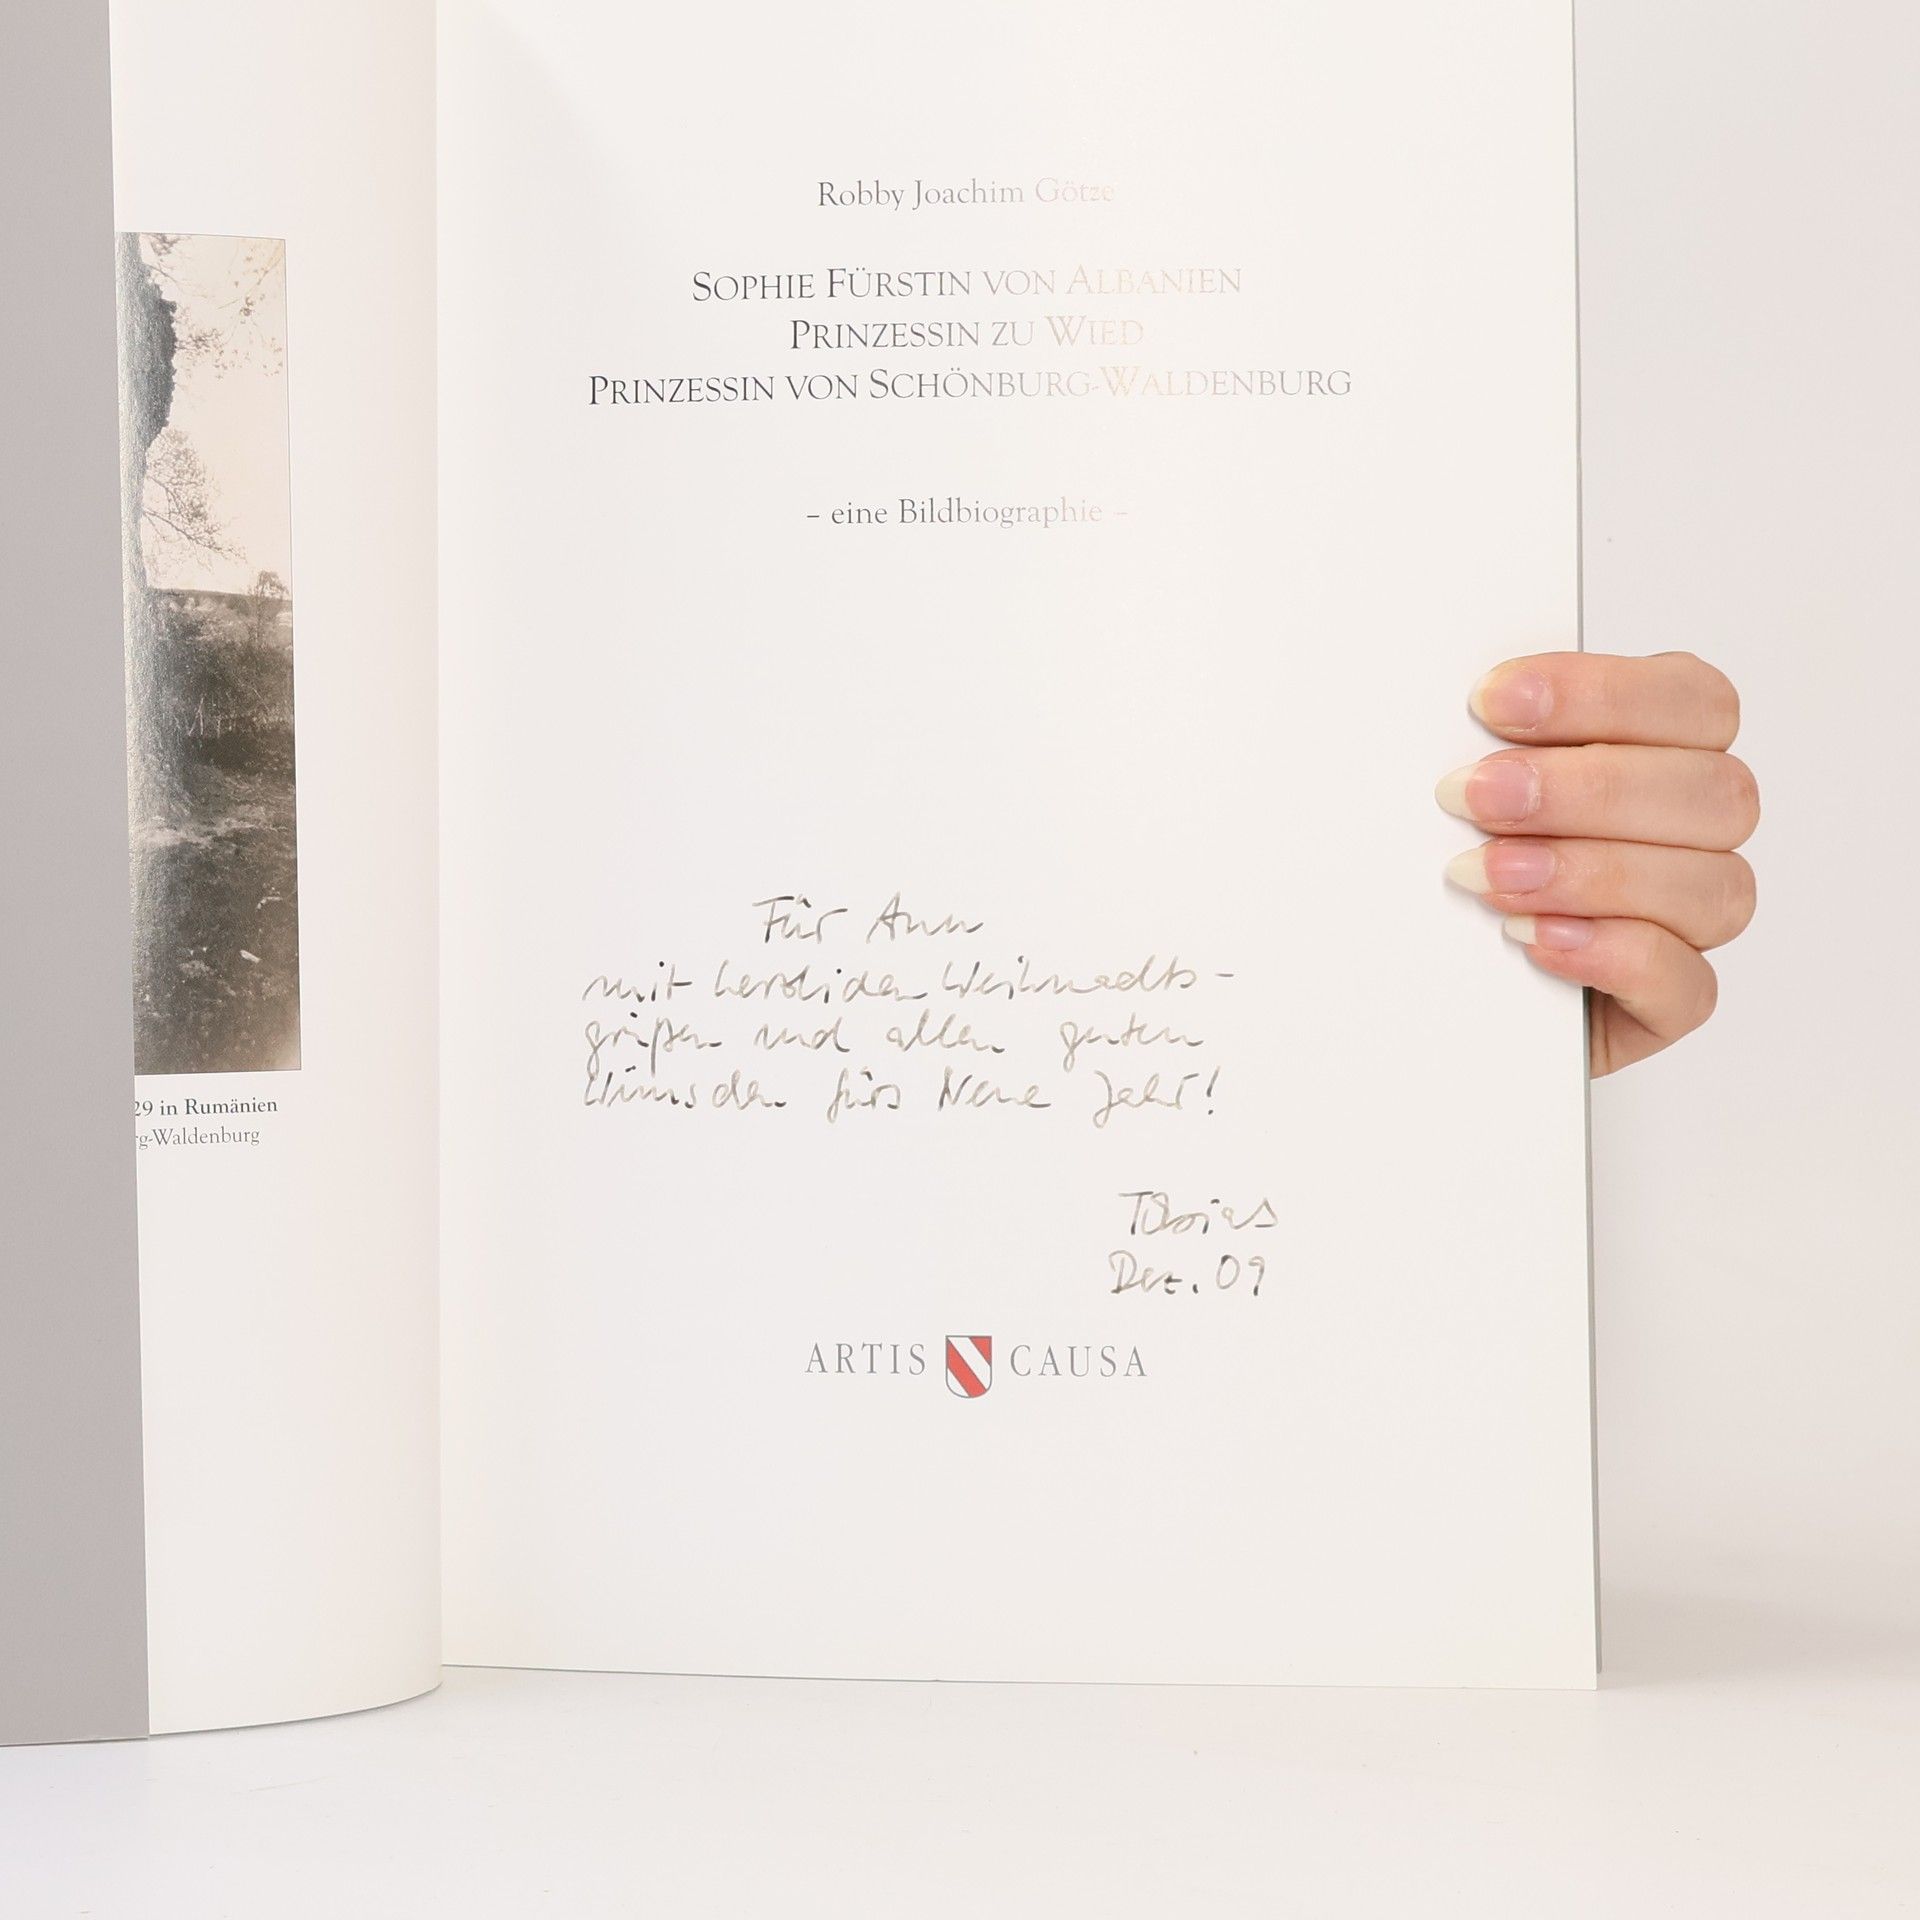 29 in Rumänien
rg-Waldenburg
Robby Joachim Götze
SOPHIE FÜRSTIN VON ALBANIEN
PRINZESSIN ZU WIED
PRINZESSIN VON SCHÖNBURG-WALDENBURG
– eine Bildbiographie –
Für Ann
mit herzlichen Weihnachts-
grüßen und allen guten
Wünschen fürs Neue Jahr!
Tobias
Dez. 09
ARTIS CAUSA